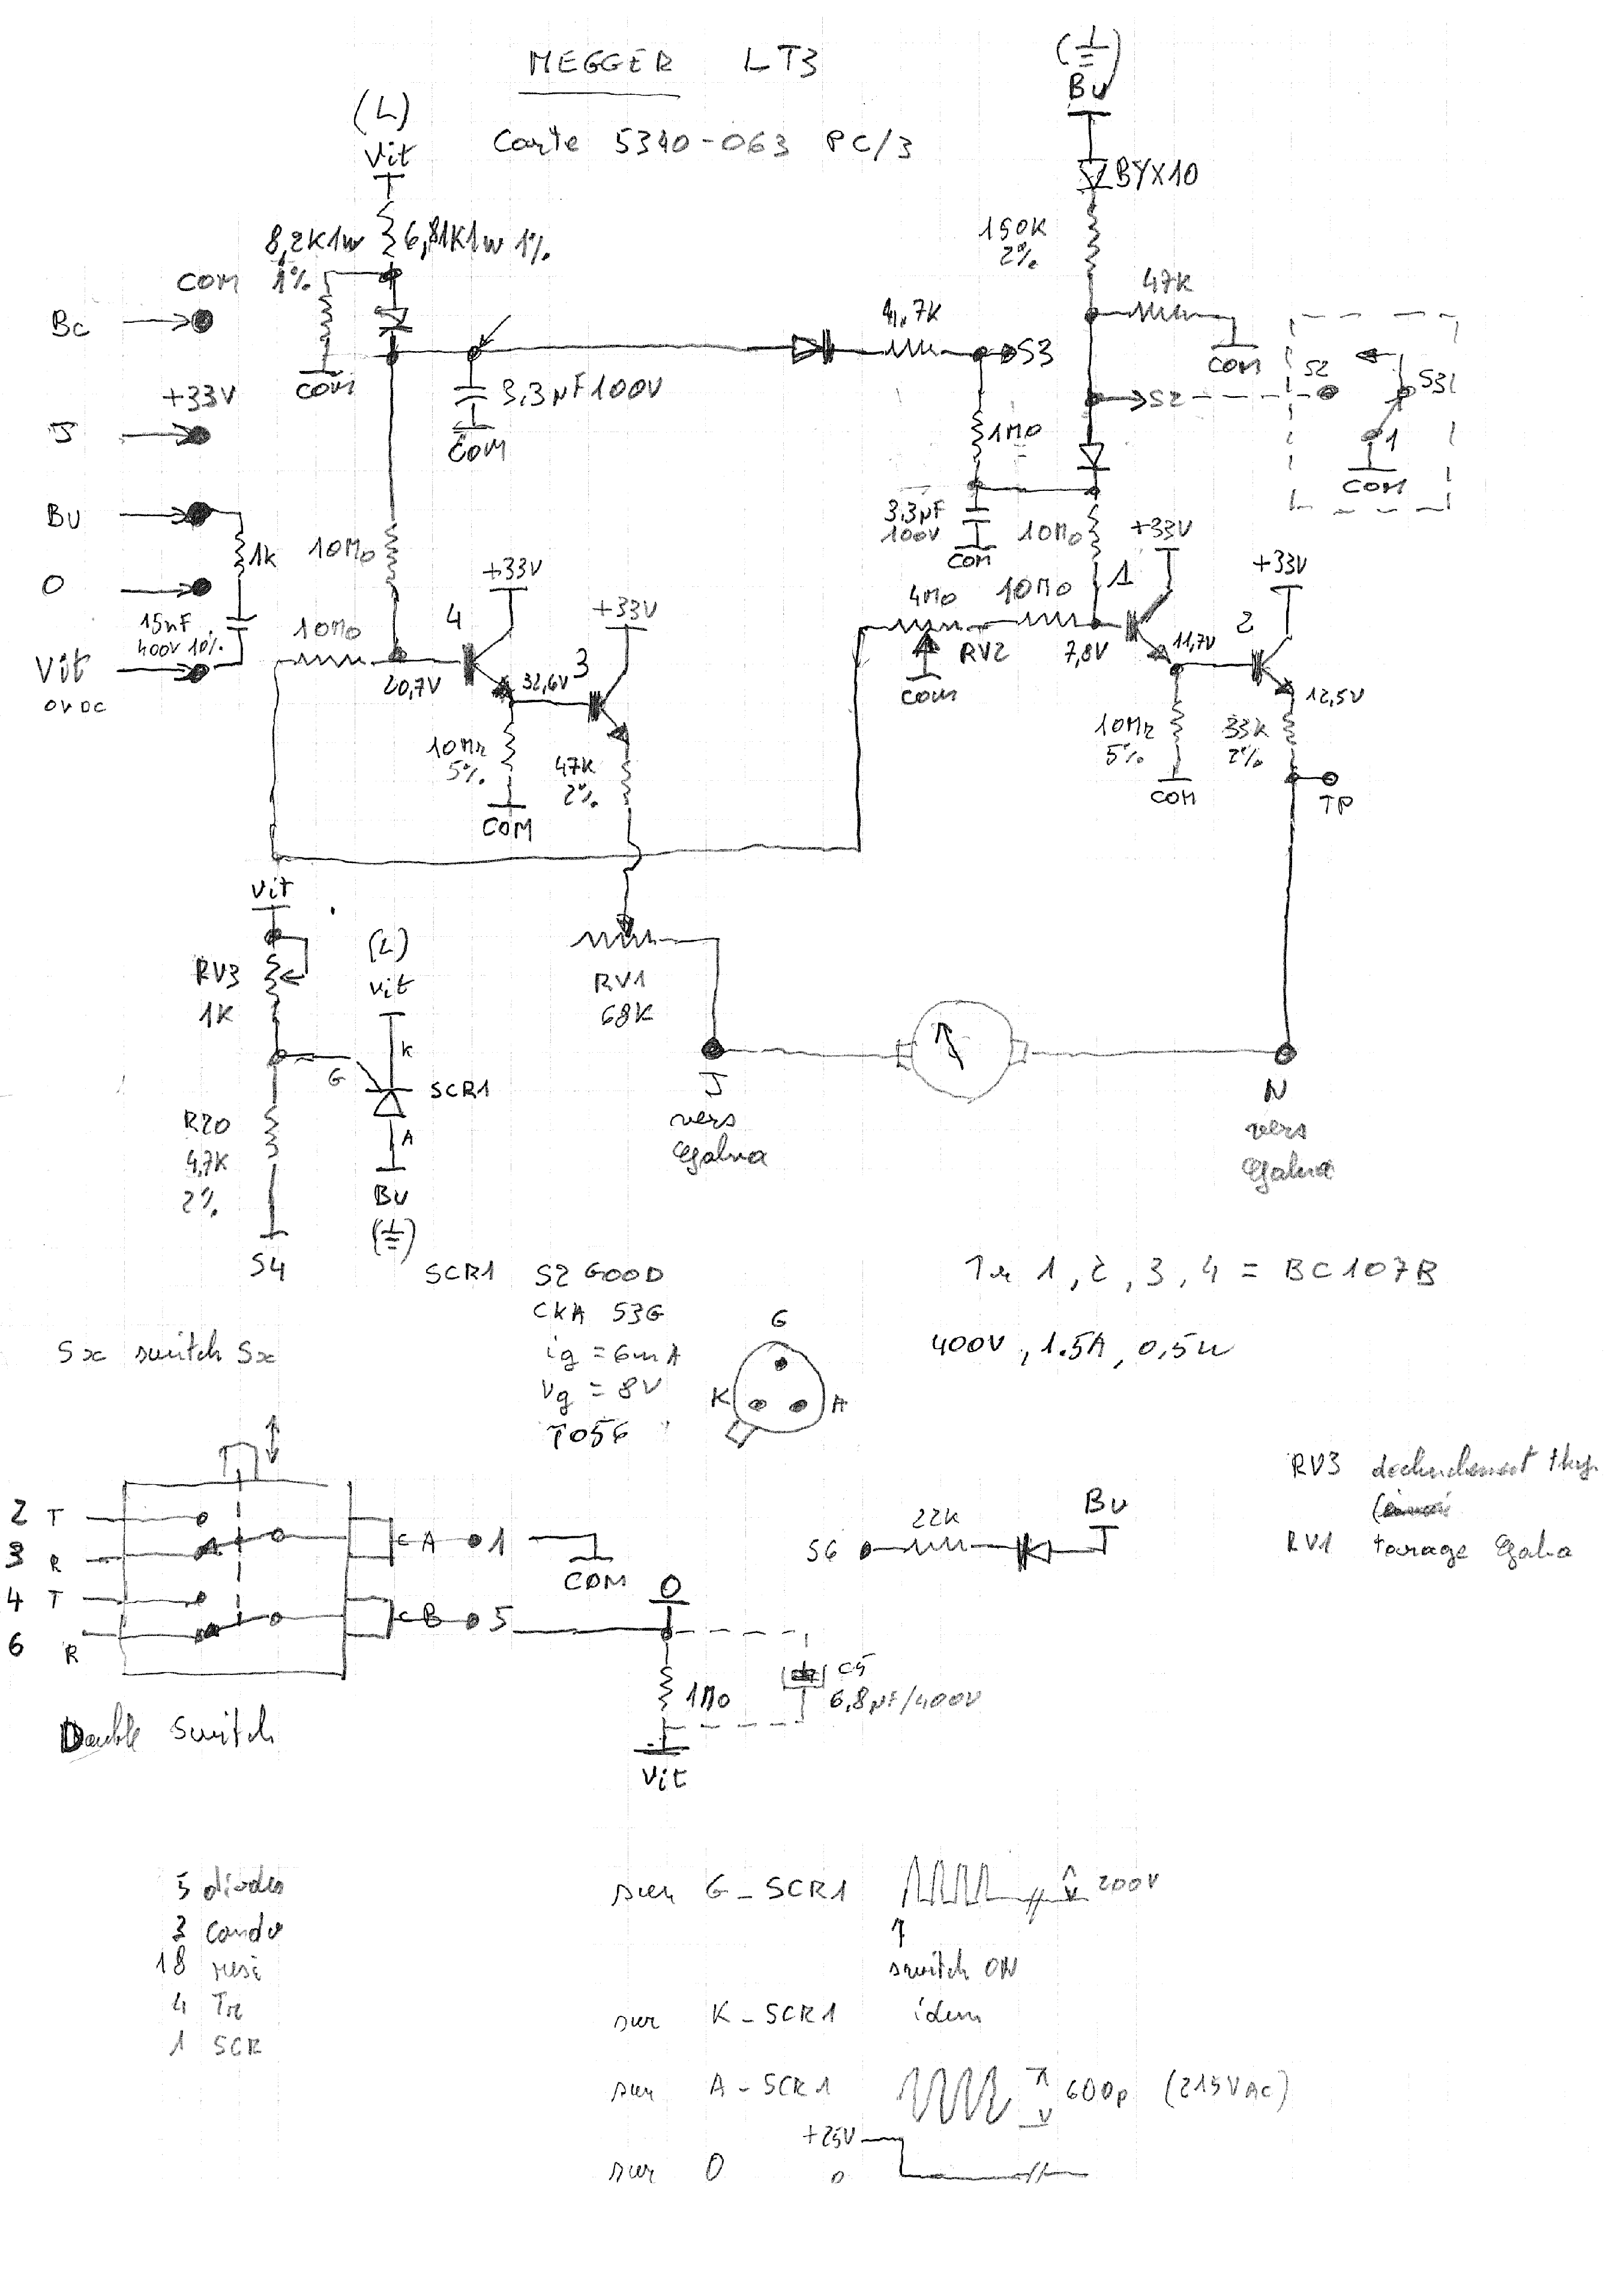 MEGGER LT3
Carte 5340-063 PC/3
(L)
Vit
8,2K1W
1%
6,81K1W 1%
COM
COM
Bc
+33V
J
Bu
1k
O
15nF
400V 10%
Vit
0V DC
3,3µF100V
COM
4,7K
S3
Bu
BYX10
150K
2%
47K
COM
S2
S2
S3
1
COM
1MΩ
3,3µF
100V
COM
10MΩ
10MΩ
10MΩ
20,7V
4
+33V
32,6V
3
+33V
10MΩ
5%
COM
47K
2%
4MΩ
RV2
COM
10MΩ
7,8V
1
+33V
11,7V
2
+33V
12,5V
10MΩ
5%
COM
33K
2%
TP
Vit
RV3
1K
G
R20
4,7K
2%
S4
(L)
Vit
K
SCR1
A
Bu
RV1
68K
J
vers
Galva
N
vers
Galva
SCR1 S2 600D
CKA 53G
ig = 6mA
Vg = 8V
TO56
G
K
A
Tr 1, 2, 3, 4 = BC107B
400V, 1.5A, 0,5W
Sx switch Sx
2 T
3 R
4 T
6 R
CA 1
COM
CB 5
Double switch
O
1MΩ
C5
6,8µF/400V
Vit
S6
22K
Bu
RV3
RV1 tarage Galva
5 diodes
3 condo
18 resi
4 Tr
1 SCR
sur G-SCR1
200V
switch ON
sur K-SCR1 idem
sur A-SCR1
600p (215VAC)
+25V
sur O
0